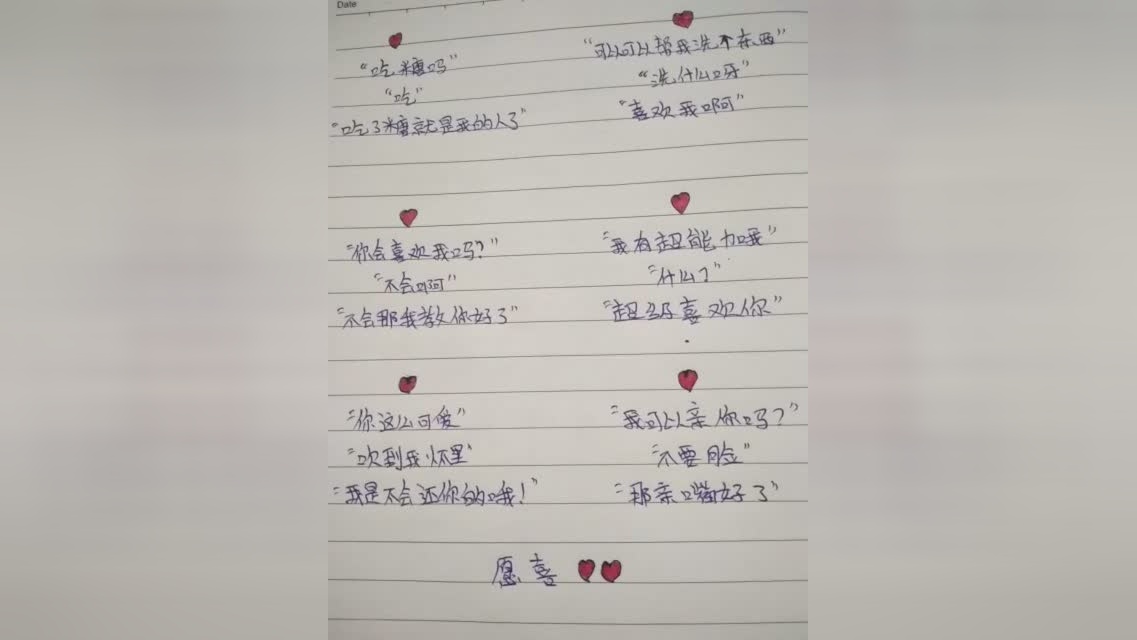 Date
"吃糖吗"
"吃"
"吃了糖就是我的人了"
"可以可以帮我洗个东西"
"洗什么呀"
"喜欢我啊"
"你会喜欢我吗?"
"不会啊"
"不会那我教你好了"
"我有超能力哦"
"什么?"
"超级喜欢你"
"你这么可爱"
"吹到我怀里"
"我是不会还你的哦!"
"我可以亲你吗?"
"不要脸"
"那亲嘴好了"
愿喜